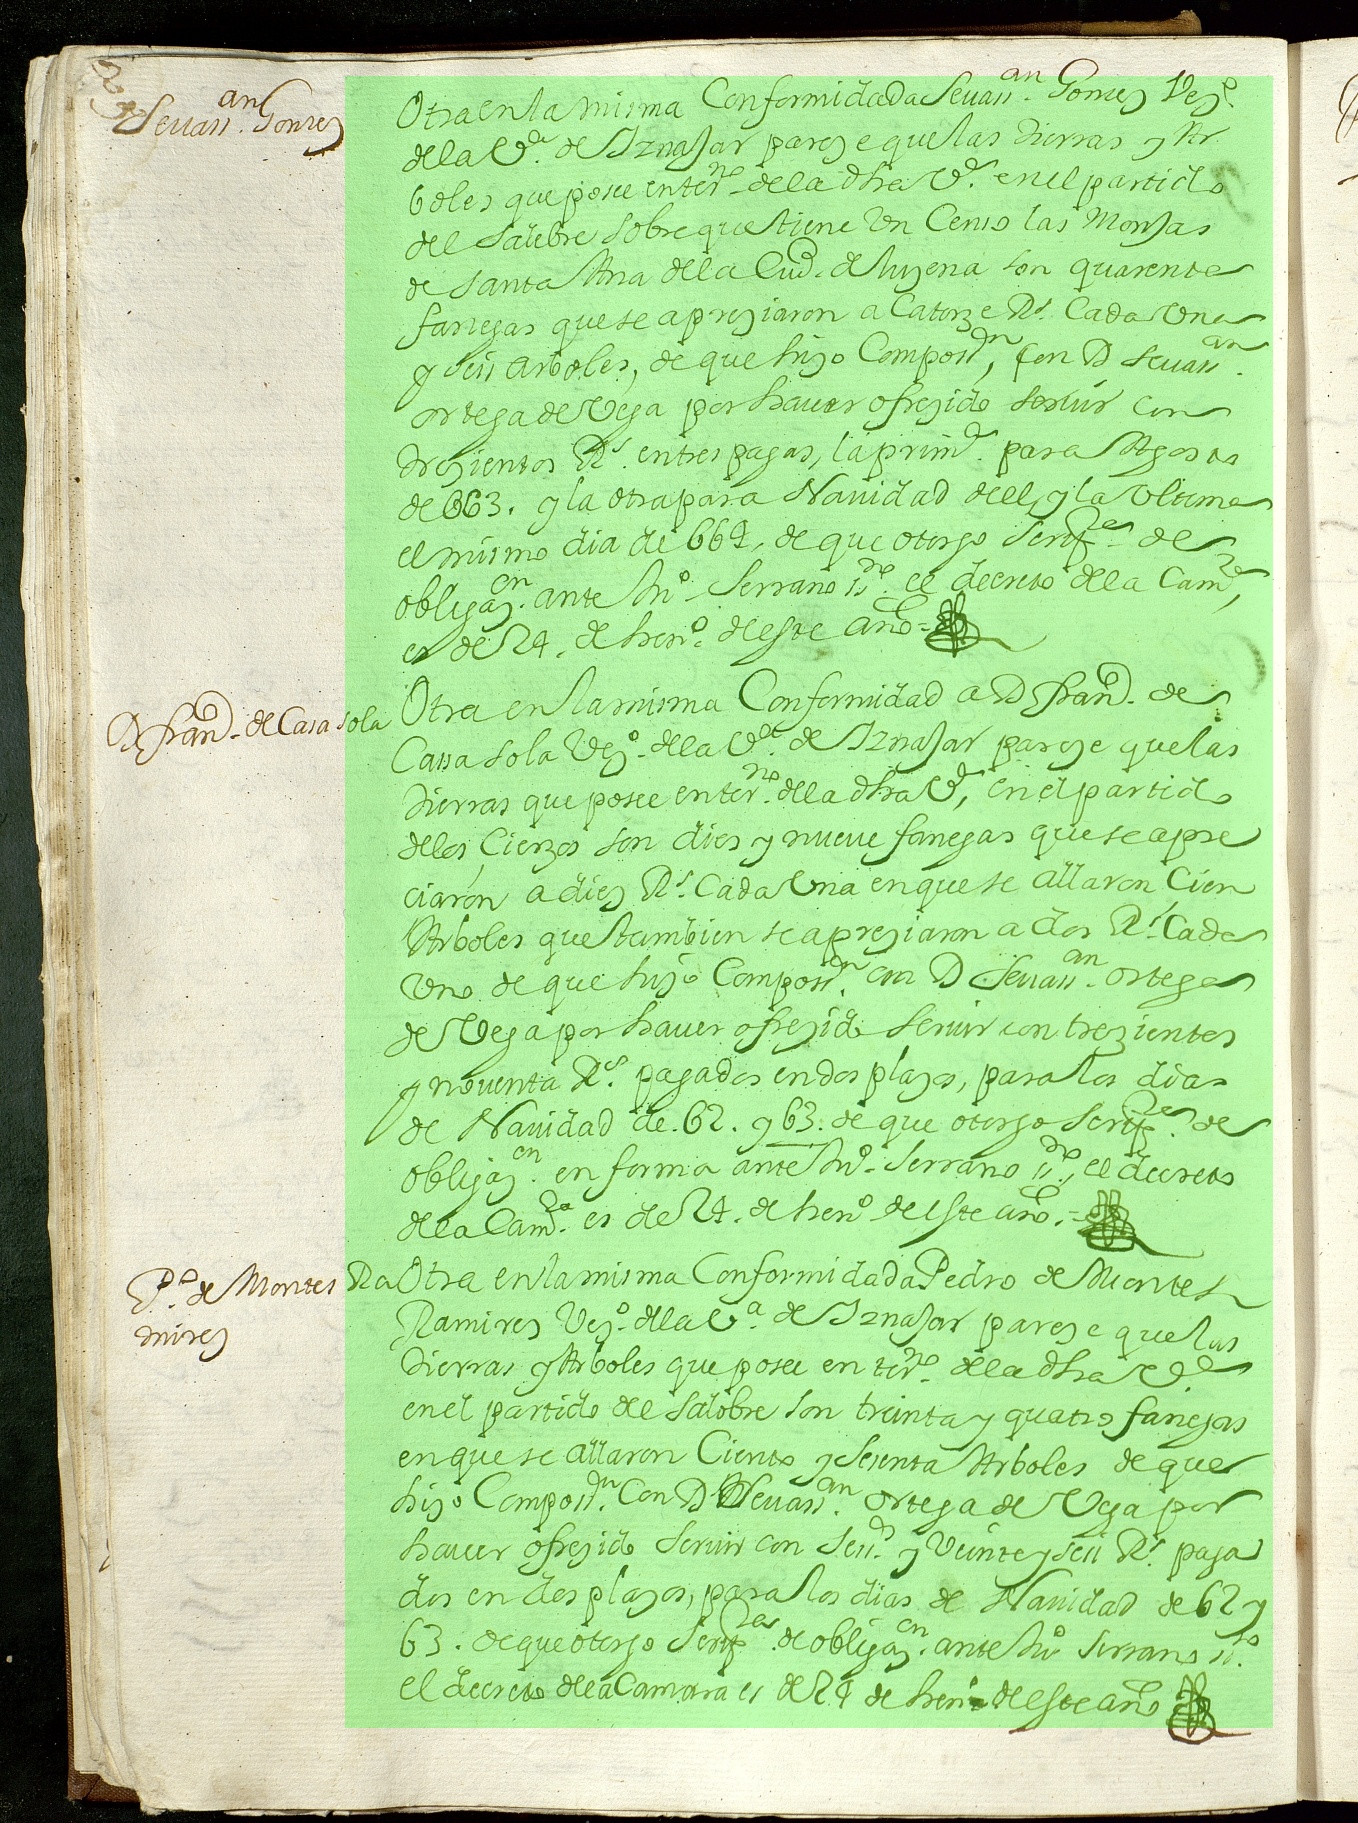 Sevass.an Gomez
Otra en la misma Conformidad a Sevass.an Gomez Vez.o
de la V.a de Iznajar pareze que las tierras y Ar
boles que posee en ter.no de la dha V.a en el partido
del Salobre sobre que tiene Un Censo las Monjas
de Santa Ana de la Ciud. de luzena son quarenta
fanegas que se apreziaron a Catorze R.s Cada Una
y seis arboles, de que hizo Composi.on, con D Sevass.an
ortega de Vega por haver ofrezido servir con
trezientos R.s en tres pagas, la prim.a para Agosto
de 663. y la otra para Navidad del, y la Ultima
el mismo dia de 664, de que otorgo Scrip.ra de
obligaz.on ante Ju.o Serrano ss.no el decreto de la Cam.ra,
es de 24. de hen.o de este año =
D fran.co de Casasola
Otra en la misma Conformidad a D fran.co de
Cassasola Vez.o de la V.a de Iznajar pareze que las
tierras que posee en ter.no de la dha V.a, en el partido
de los Cierzos son dies y nueve fanegas que se apre
ciaron a diez R.s Cada Una en que se allaron Cien
Arboles que tambien se apreziaron a dos R.s Cada
Uno de que hizo Composi.on con D Sevass.an ortega
de Vega por haver ofrezido servir con trezientos
y noventa R.s pagados en dos plazos, para los dias
de Navidad de. 62. y 63. de que otorgo Scrip.ra de
obligaz.on en forma ante Ju.o Serrano ss.no, el decreto
de la Cam.ra es de 24. de hen.o de este año. =
P.o de Montes Ra
mirez
Otra en la misma Conformidad a Pedro de Montes
Ramirez Vez.o de la V.a de Iznajar pareze que las
tierras y Arboles que posee en ter.no de la dha V.a
en el partido de Salobre son treinta y quatro fanegas
en que se allaron Ciento y sesenta Arboles de que
hizo Composi.on Con D Sevass.an ortega de Vega por
haver ofrezido servir con seis.os y Veinte y seis R.s paga
dos en dos plazos, para los dias de Navidad de 62 y
63. de que otorgo Scrip.ra de obligaz.on ante Ju.o Serrano ss.no
el decreto de la Camara es de 24 de hen.o de este año